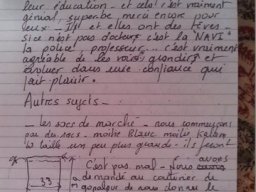 leur éducation - et cela c'est vraiment
génial, superbe merci encore pour
eux - Ils et elles ont des rêves
si ce n'est pas docteur c'est la NAVI
la police, professeur... c'est vraiment
agréable de les voir grandir et
évoluer dans une confiance qui
fait plaisir.
Autres sujets -
- les sacs de marché - nous
pas des sacs - moitié blanc moitié
la taille un peu plus grande - ils
C'est pas mal - nous avons
demandé au couturier de
de nous donner le
33